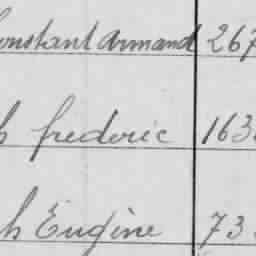 Constant Armand 267
h frederic 163
h Eugène 73